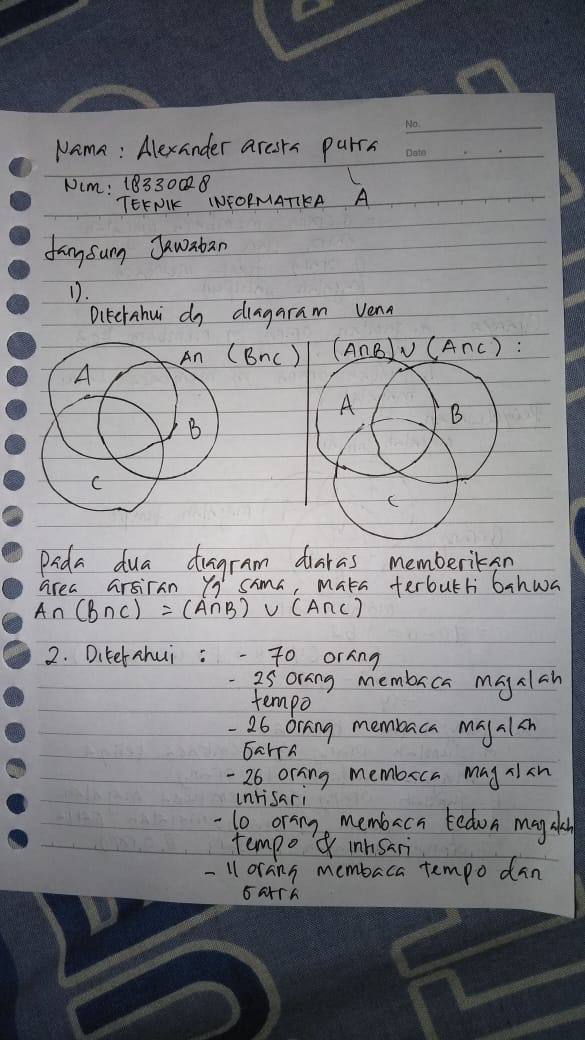 No.
Date
Nama : Alexander aresta putra
Nim : 18330028
TEKNIK INFORMATIKA A
Langsung Jawaban
1).
Diketahui dg diagaram Vena
An (Bnc)
(AnB) ∪ (Anc) :
A
B
C
A
B
C
pada dua diagram diatas memberikan
area arsiran yg sama, maka terbukti bahwa
An (Bnc) = (AnB) ∪ (Anc)
2. Diketahui : - 70 orang
- 25 orang membaca majalah
tempo
- 26 orang membaca majalah
Gatra
- 26 orang membaca majalah
intisari
- 10 orang membaca kedua majalah
tempo & intisari
- 11 orang membaca tempo dan
Gatra